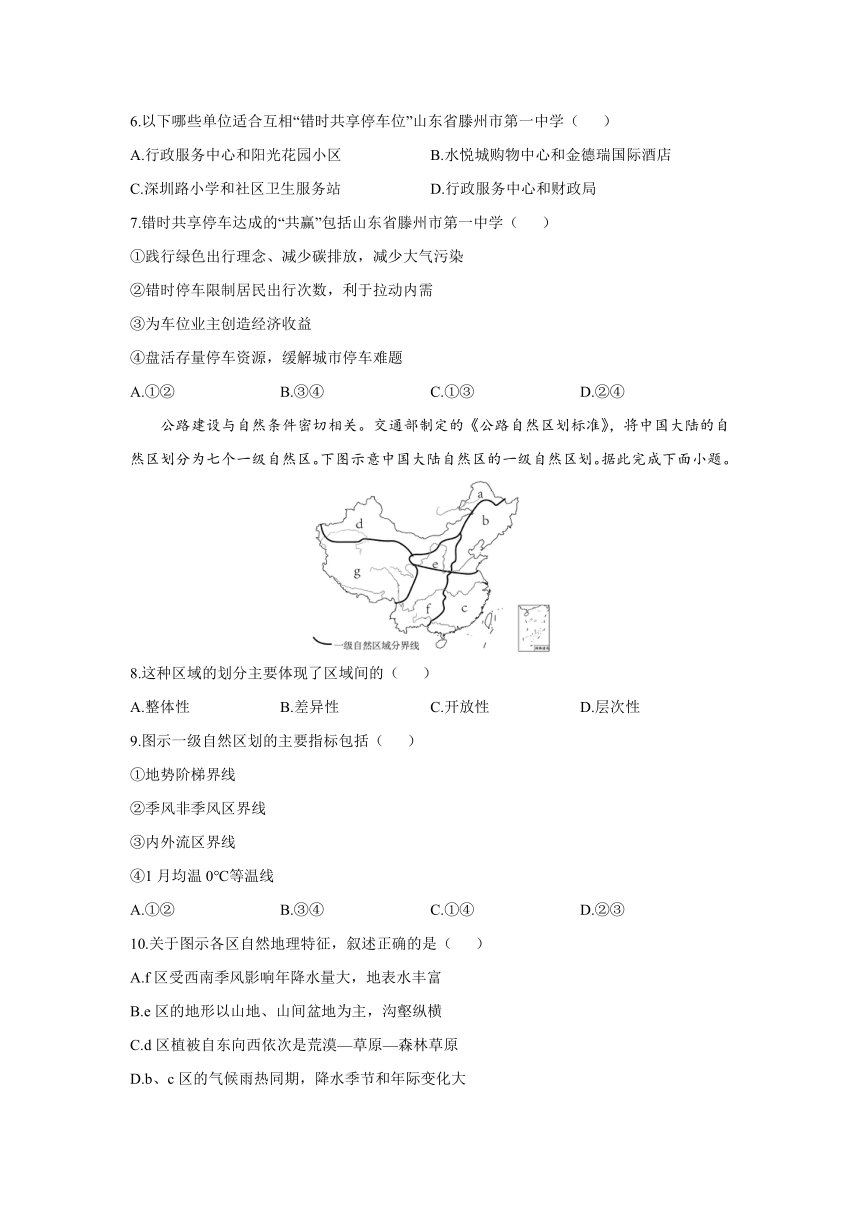 6.以下哪些单位适合互相“错时共享停车位”山东省滕州市第一中学（ ）
A.行政服务中心和阳光花园小区 B.水悦城购物中心和金德瑞国际酒店
C.深圳路小学和社区卫生服务站 D.行政服务中心和财政局
7.错时共享停车达成的“共赢”包括山东省滕州市第一中学（ ）
①践行绿色出行理念、减少碳排放，减少大气污染
②错时停车限制居民出行次数，利于拉动内需
③为车位业主创造经济收益
④盘活存量停车资源，缓解城市停车难题
A.①② B.③④ C.①③ D.②④
公路建设与自然条件密切相关。交通部制定的《公路自然区划标准》，将中国大陆的自
然区划分为七个一级自然区。下图示意中国大陆自然区的一级自然区划。据此完成下面小题。
a
d
b
e
g
f
c
一级自然区域分界线
8.这种区域的划分主要体现了区域间的（ ）
A.整体性 B.差异性 C.开放性 D.层次性
9.图示一级自然区划的主要指标包括（ ）
①地势阶梯界线
②季风非季风区界线
③内外流区界线
④1 月均温 0℃等温线
A.①② B.③④ C.①④ D.②③
10.关于图示各区自然地理特征，叙述正确的是（ ）
A.f 区受西南季风影响年降水量大，地表水丰富
B.e 区的地形以山地、山间盆地为主，沟壑纵横
C.d 区植被自东向西依次是荒漠—草原—森林草原
D.b、c 区的气候雨热同期，降水季节和年际变化大